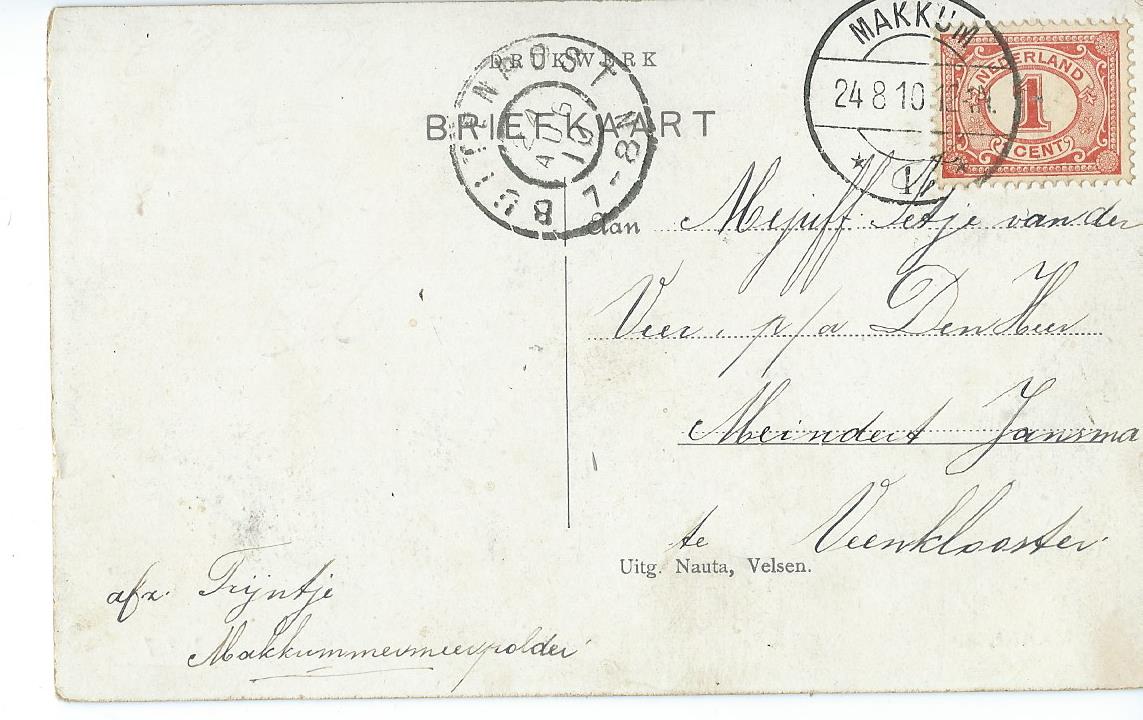 DRUKWERK
BRIEFKAART
BUITENPOST
24 AUG 10
7-8N
MAKKUM
24 8 10
1
NEDERLAND
1
CENT
Aan Mejuff. Jetje van der
Veer. p/a Den Heer
Meindert Jansma
te Veenklooster
Uitg. Nauta, Velsen.
afz. Trijntje
Makkummermeerpolder